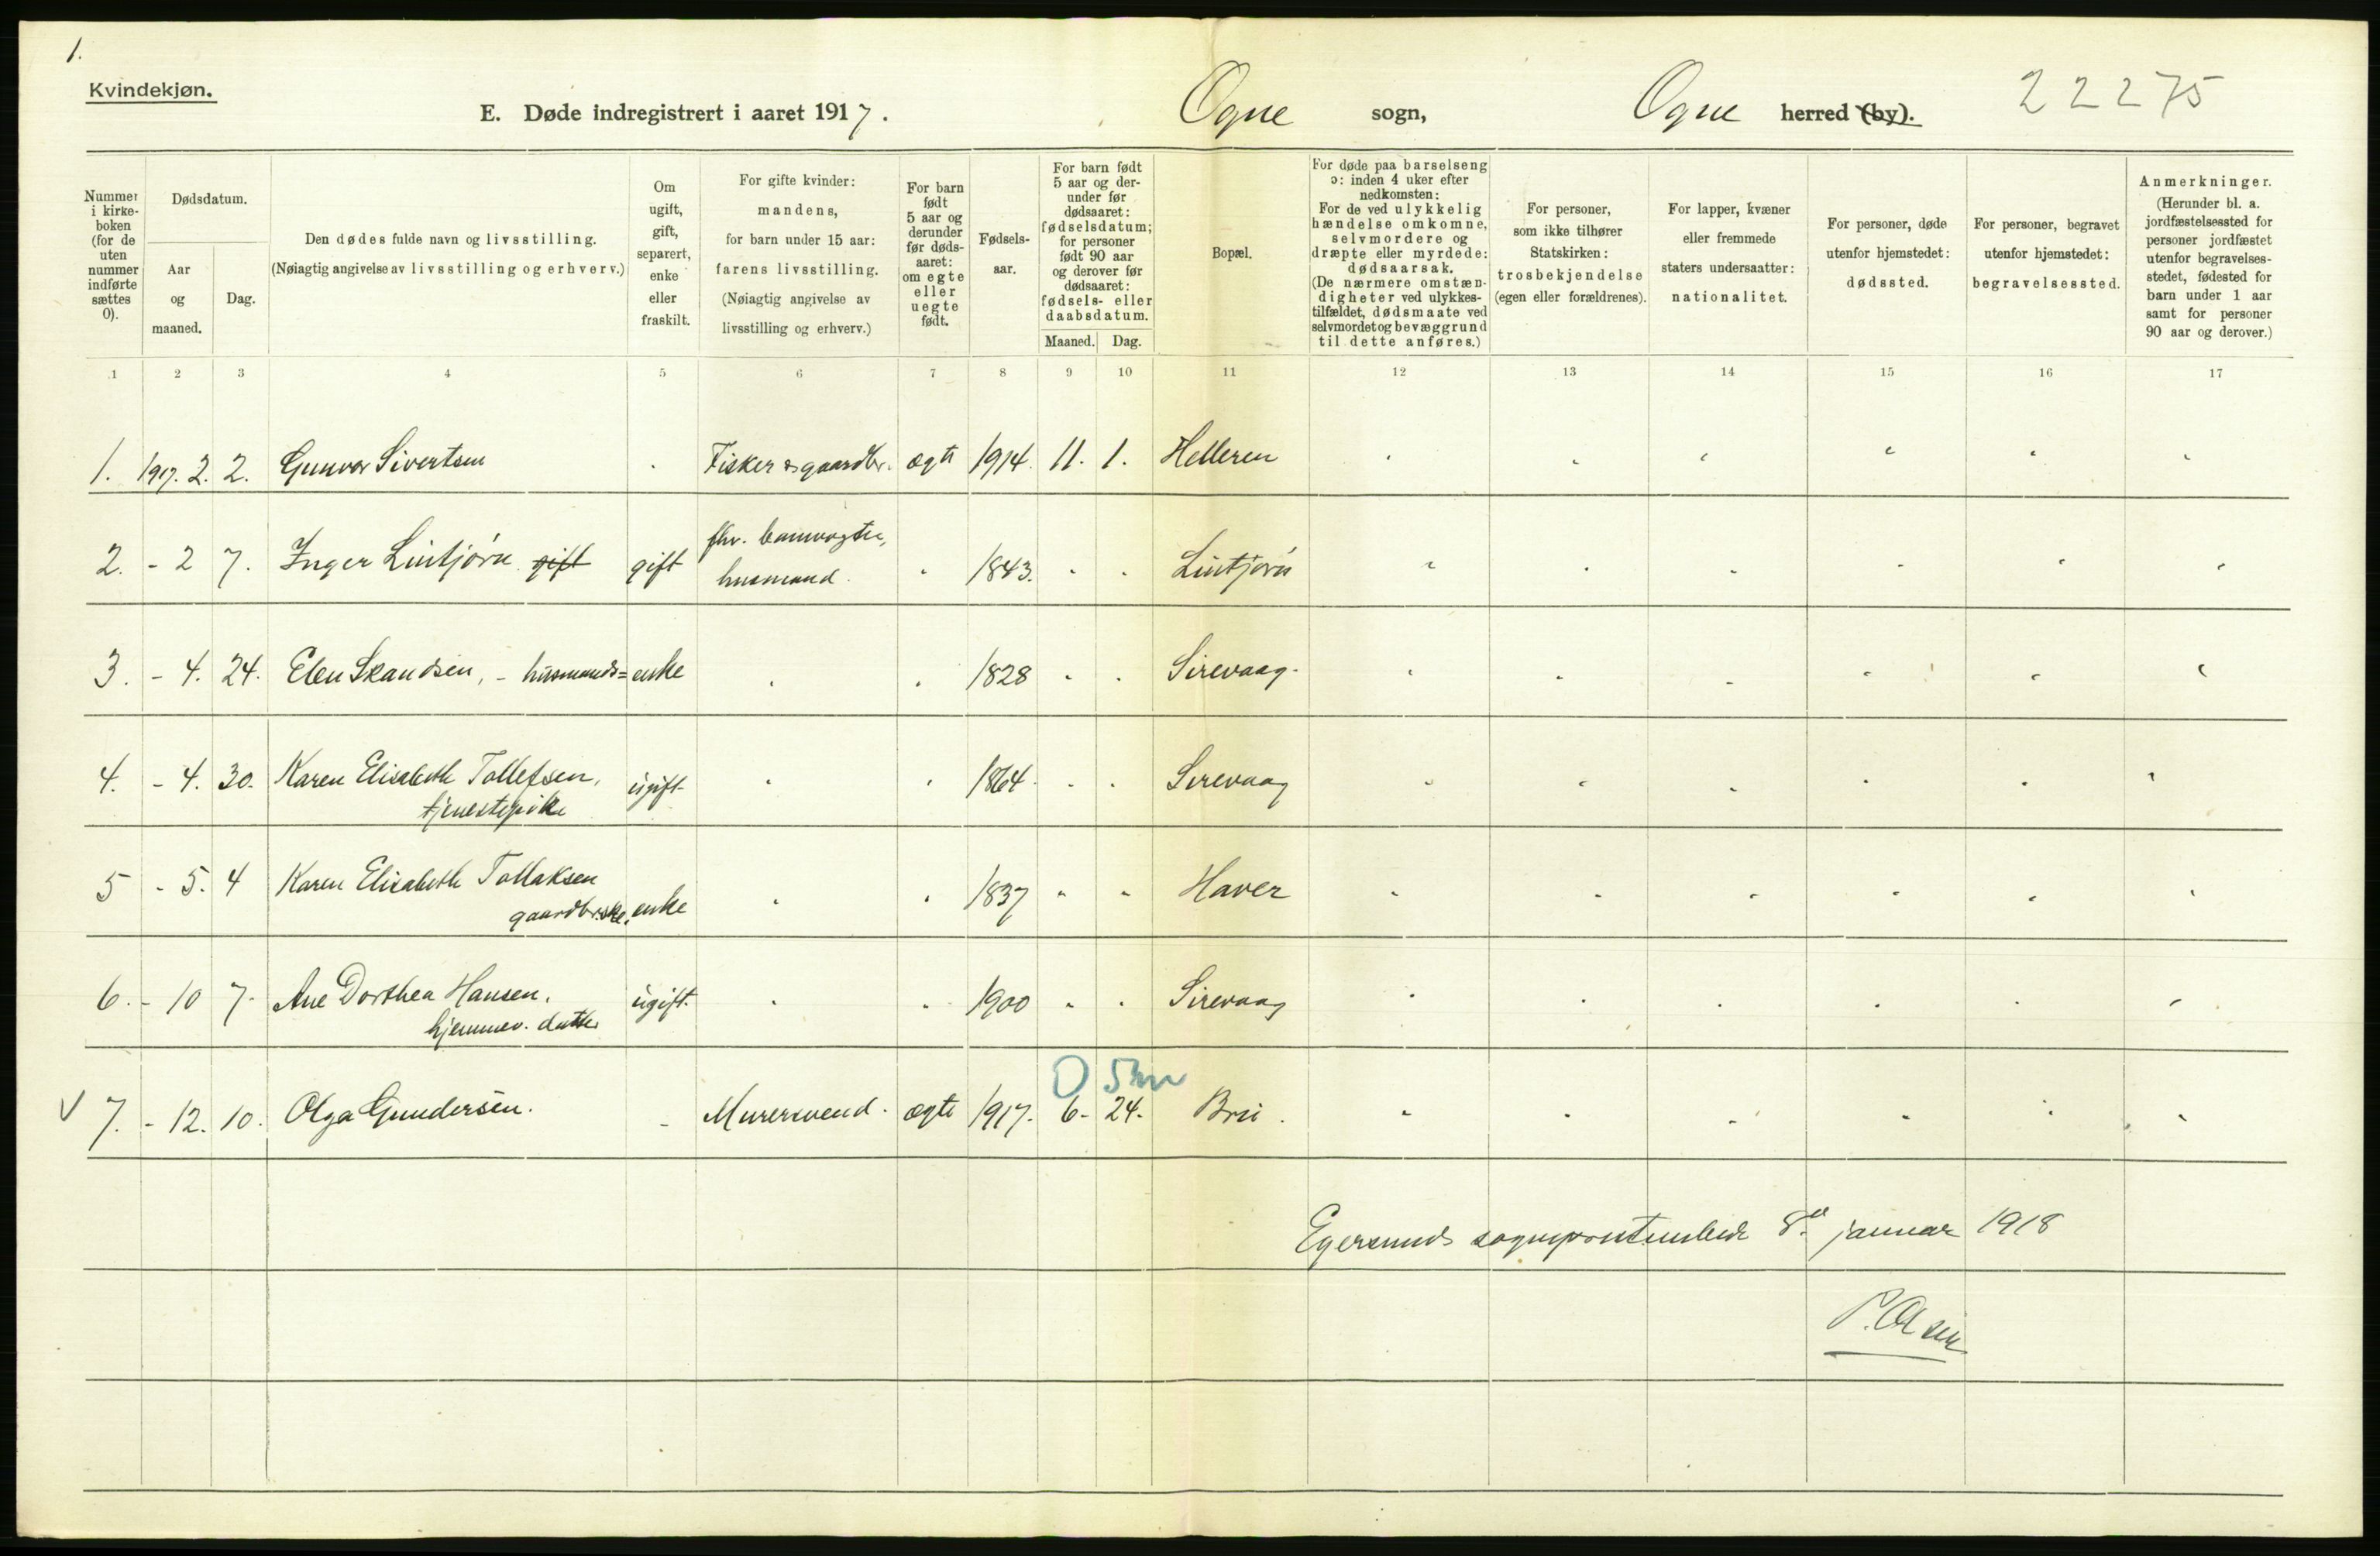 1.
Kvindekjøn.
E. Døde indregistrert i aaret 1917.
Ogne sogn, Ogne herred (by). 22275
Nummer i kirkeboken (for de uten nummer indførte sættes 0).
Dødsdatum.
Aar og maaned.
Dag.
Den dødes fulde navn og livsstilling.
(Nøiagtig angivelse av livsstilling og erhverv.)
Om ugift, gift, separert, enke eller fraskilt.
For gifte kvinder: mandens, for barn under 15 aar: farens livsstilling.
(Nøiagtig angivelse av livsstilling og erhverv.)
For barn født 5 aar og derunder før dødsaaret: om egte eller uegte født.
Fødselsaar.
For barn født 5 aar og derunder før dødsaaret: fødselsdatum; for personer født 90 aar og derover før dødsaaret: fødsels- eller daabsdatum.
Maaned. Dag.
Bopæl.
For døde paa barselseng ɔ: inden 4 uker efter nedkomsten:
For de ved ulykkelig hændelse omkomne, selvmordere og dræpte eller myrdede: dødsaarsak.
(De nærmere omstændigheter ved ulykkestilfældet, dødsmaate ved selvmordet og bevæggrund til dette anføres.)
For personer, som ikke tilhører Statskirken: trosbekjendelse (egen eller forældrenes).
For lapper, kvæner eller fremmede staters undersaatter: nationalitet.
For personer, døde utenfor hjemstedet: dødssted.
For personer, begravet utenfor hjemstedet: begravelsessted.
Anmerkninger. (Herunder bl. a. jordfæstelsessted for personer jordfæstet utenfor begravelsesstedet, fødested for barn under 1 aar samt for personer 90 aar og derover.)
1 2 3 4 5 6 7 8 9 10 11 12 13 14 15 16 17
1. 1917. 2. 2. Gunvor Sivertsen Fisker og gaardbr. ægte 1914. 11. 1. Helleren
2. - 2 7. Inger Lintjørn gift gift fhv. banevogter, husmand. 1843. Lintjørn
3. - 4. 24. Elen Skandsen, - husmands= enke 1828 Sirevaag.
4. - 4. 30. Karen Elisabeth Tollefsen, ugift 1864. Sirevaag
tjenestepike
5 - 5. 4 Karen Elisabeth Tollaksen 1837 Haver
gaardbrske, enke
6. - 10 7. Ane Dorthea Hansen, ugift. 1900 Sirevaag
hjemmev. datter
0 5 mn
V 7. - 12. 10. Olga Gundersen. - Murersvend. ægte 1917. 6. 24. Bru.
Egersunds sogneprestembede 8de januar 1918
P. Olsen